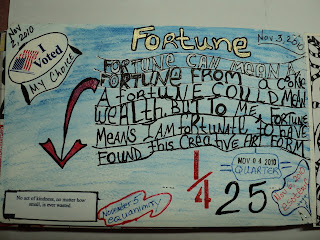 Nov 2, 2010
Fortune
Nov 3, 2010
I Voted
My Choice
FORTUNE CAN MEAN A
FORTUNE FROM A COOKIE
A FORTUNE COULD MEAN
WEALTH BUT TO ME, A FORTUNE
MEANS I AM FORTUNATE TO HAVE
FOUND this CREATIVE ART FORM
No act of kindness, no matter how
small, is ever wasted.
November 5
equanimity
1/4
NOV 04 2010
QUARTER
25